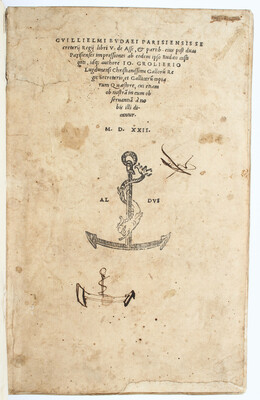 GVILLIELMI BVDAEI PARISIENSIS SE
cretarij Regij libri V. de Asse, & partib. eius post duas
Parisienses impressiones ab eodem ipso Budaeo casti
gati, idq; authore IO. GROLIERIO
Lugdunensi Christianissimi Gallorũ Re
gis Secretario, et Gallicarũ copia
rum Quæstore, cui etiam
ob nostrã in eum ob
seruantiã à no
bis illi di
cantur.
M. D. XXII.
AL DVS